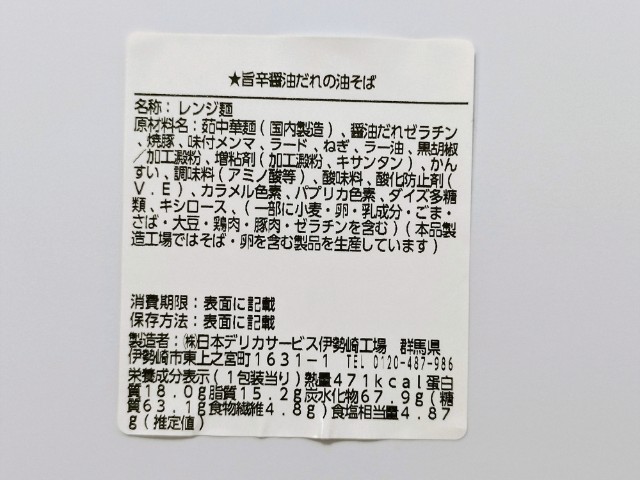 ★旨辛醤油だれの油そば
名称：レンジ麺
原材料名：茹中華麺(国内製造)、醤油だれゼラチン
、焼豚、味付メンマ、ラード、ねぎ、ラー油、黒胡椒
／加工澱粉、増粘剤(加工澱粉、キサンタン)、かん
すい、調味料(アミノ酸等)、酸味料、酸化防止剤(
Ｖ．Ｅ)、カラメル色素、パプリカ色素、ダイズ多糖
類、キシロース、(一部に小麦・卵・乳成分・ごま・
さば・大豆・鶏肉・豚肉・ゼラチンを含む)(本品製
造工場ではそば・卵を含む製品を生産しています)
消費期限：表面に記載
保存方法：表面に記載
製造者：㈱日本デリカサービス伊勢崎工場 群馬県
伊勢崎市東上之宮町１６３１−１ TEL 0120-487-986
栄養成分表示(１包装当り)熱量４７１kcal蛋白
質１８．０g脂質１５．２g炭水化物６７．９g(糖
質６３．１g食物繊維４．８g)食塩相当量４．８７
g(推定値)